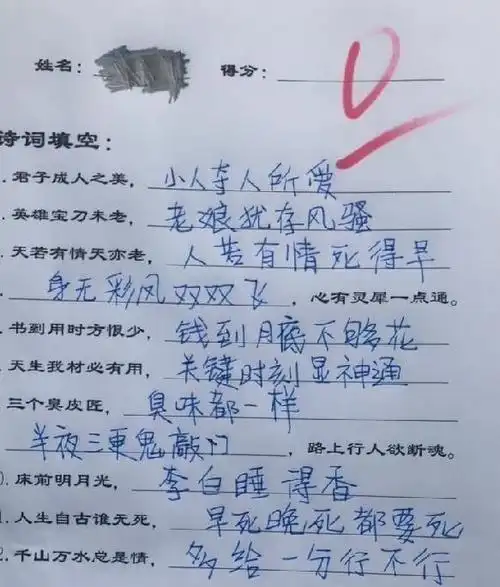 姓名： 得分： 0
诗词填空：
.君子成人之美，小人夺人所爱
.英雄宝刀未老，老娘犹存风骚
.天若有情天亦老，人若有情死得早
.身无彩凤双双飞，心有灵犀一点通。
.书到用时方恨少，钱到月底不够花
.天生我材必有用，关键时刻显神通
.三个臭皮匠，臭味都一样
半夜三更鬼敲门，路上行人欲断魂。
).床前明月光，李白睡得香
.人生自古谁无死，早死晚死都要死
2.千山万水总是情，多给一分行不行